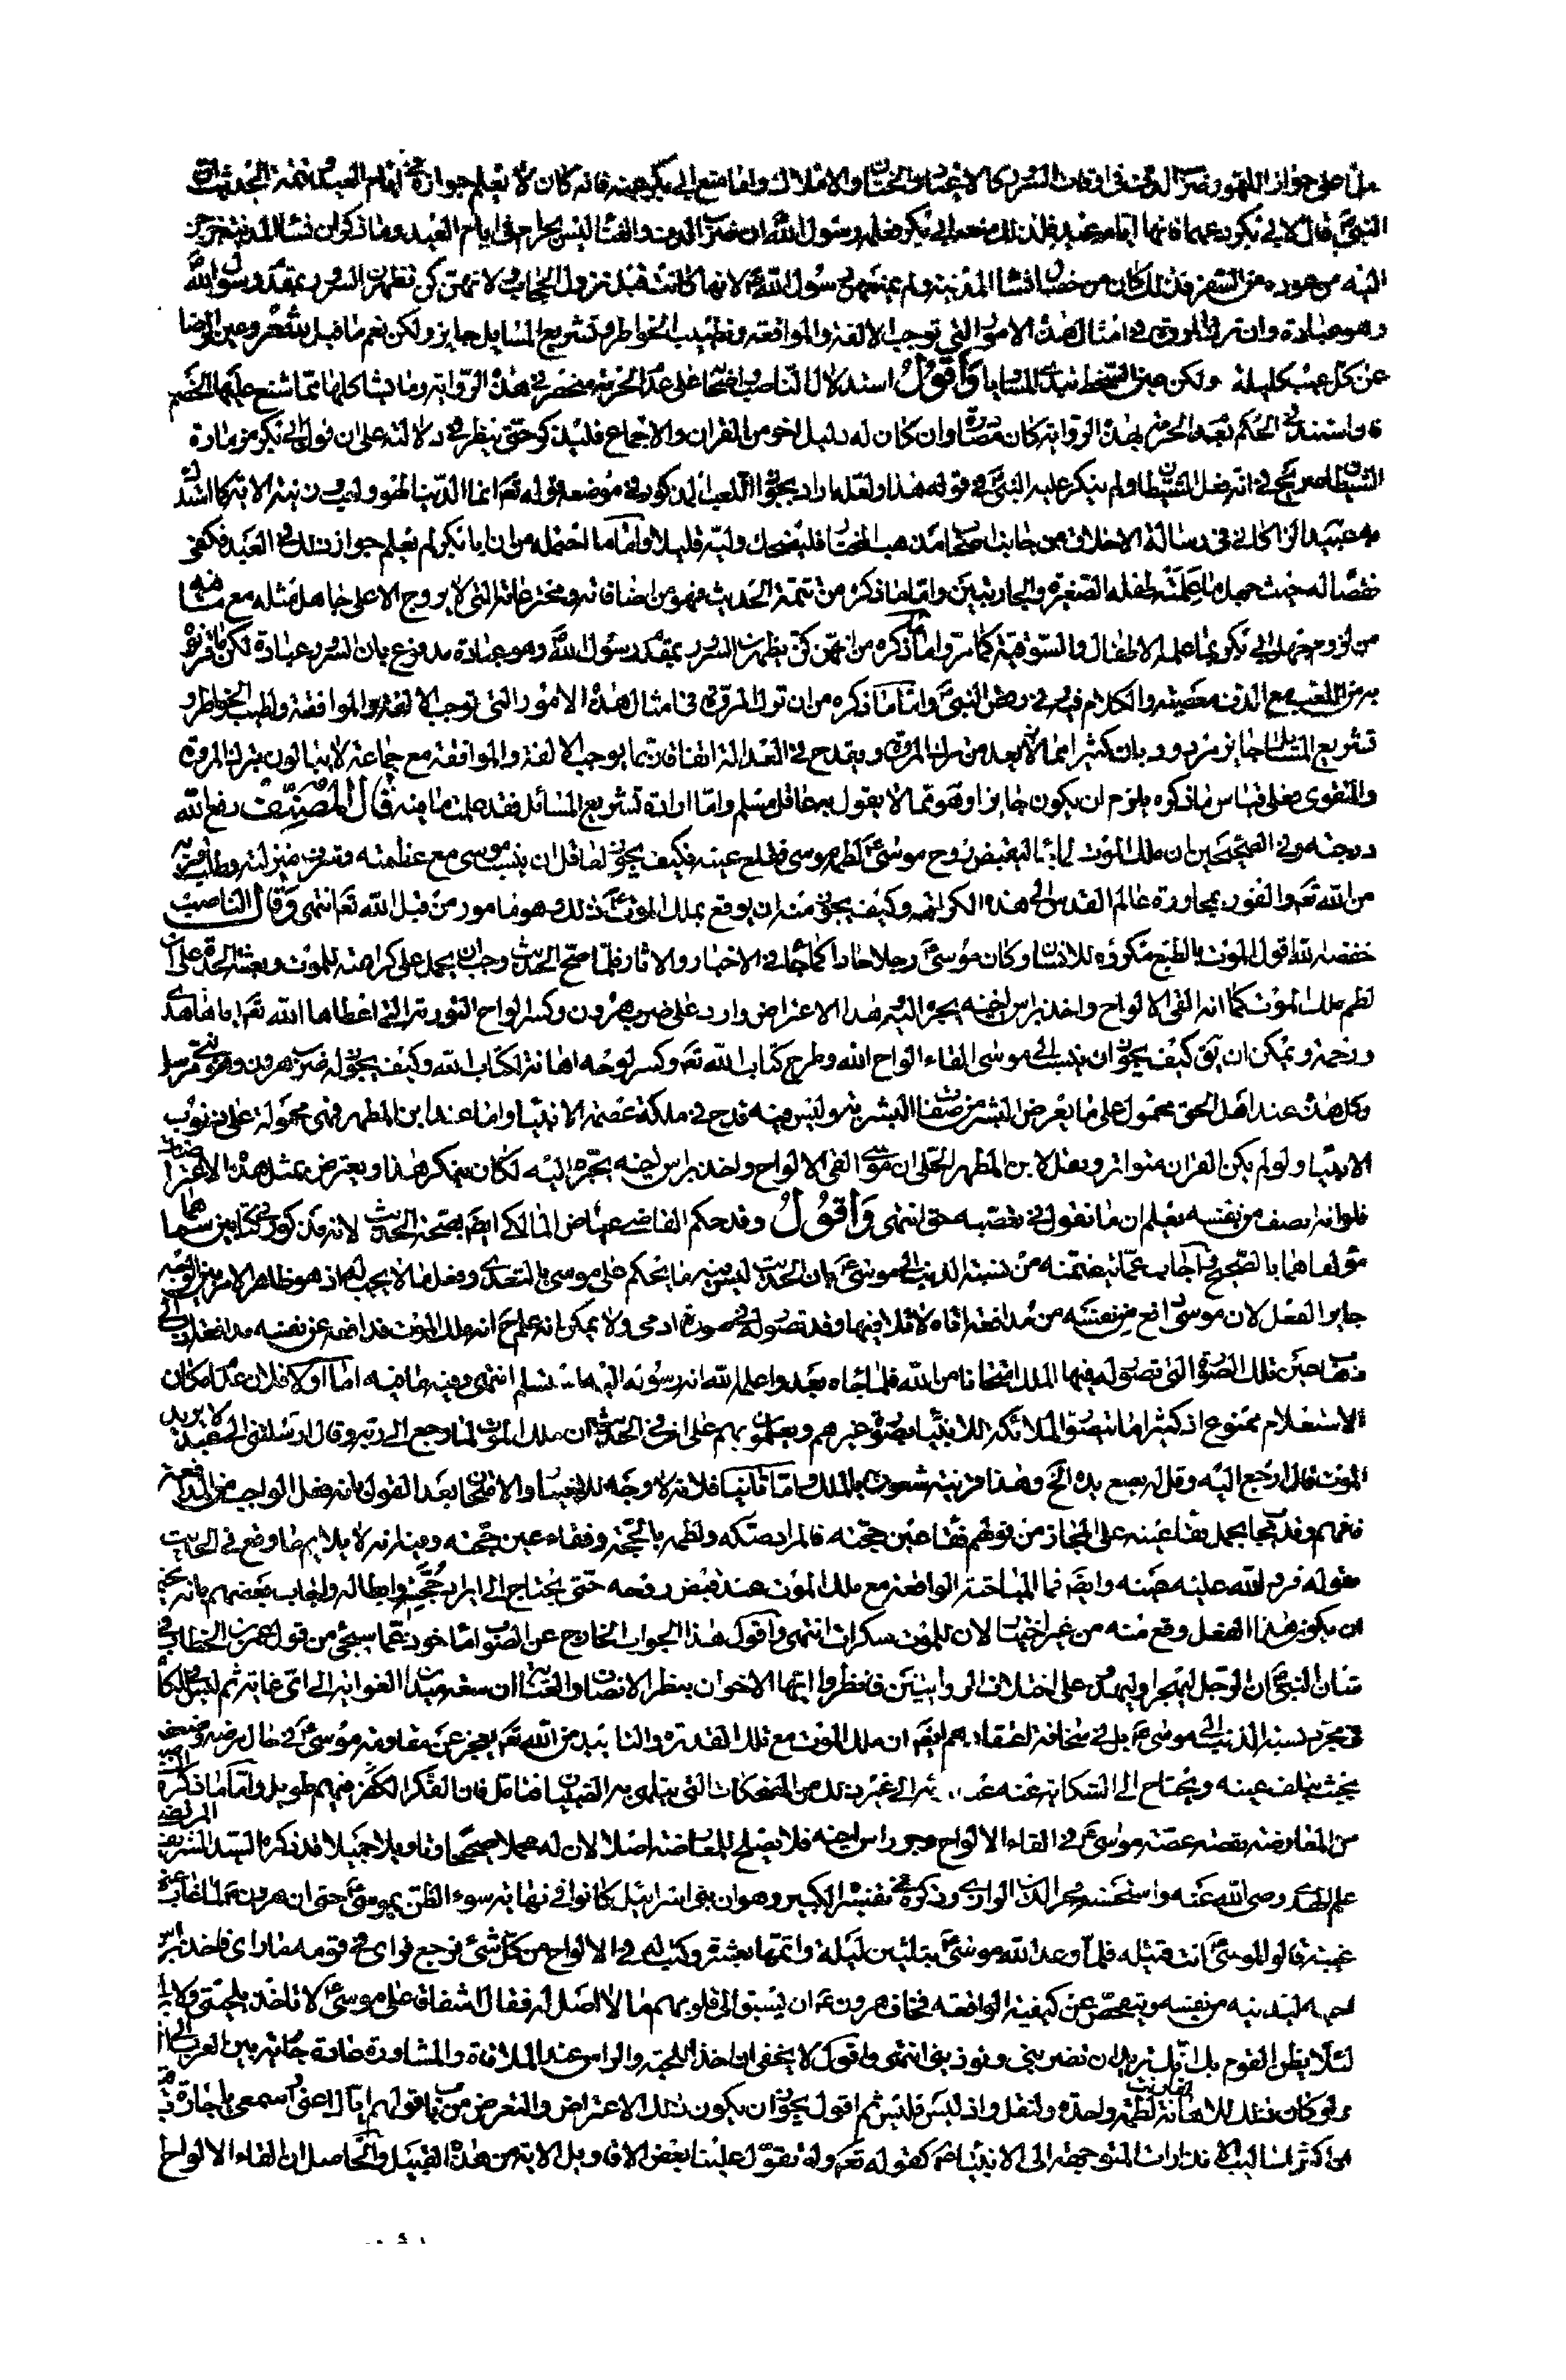 على جواز اللهو وضرب الدف في اوقات السرور كالاعياد والختان والاملاك واما منع ابي بكر عنه فانه كان لا يعلم جوازه في ايام العيد فتمة الحديث ان
النبي ص قال لابي بكر دعهما فانها ايام عيد فلذلك منعه ابي بكر فعلمه رسول الله ان ضرب الدف والغنا ليس بحرام في ايام العيد وما ذكر ان نساء المدينة خرجن
اليه من عوده من السفر فذلك كان من خصال نساء المدينة ولم يمنعهن رسول الله ص لانها كانت قبل نزول الحجاب ولانهن كن يظهرن السرور بمقدم رسول الله
وهو عبادة وان ترك المروة في امثال هذه الامور التي توجب الالفة والموافقة وتطييب الخواطر وتشريع المسايل جايز ولكن نعم ما قيل شعر وعين الرضا
عن كل عيب كليلة ولكن عين السخط تبدي المساويا وأقول استدلال الناصب واصحابه على عدم الحرمة منحصر في هذه الرواية وما يشاكلها مما شنع عليها الخصم
واستند في الحكم بعدم الحرمة بهذه الرواية كان مصادرة وان كان له دليل اخر من القران والاجماع فليذكر حتى ينظر في دلالته على ان قول ابي بكر مزمارة
الشيطان صريح في انه فعل الشيطان ولم ينكر عليه النبي ص في قوله هذا ولعله اراد بجواز اللعب المذكور في موضعه قوله تع انما الدنيا لهو ولعب وزينة الاية كما استدل
به عبيد الزاكاني في رسالة الاخلاق من جانب اصحاب مذهب المختار فليضحك وليه قليلا واما ما احتمله من ان ابا بكر لم يعلم جواز ذلك في العيد فكفى
نقصا له حيث جهل ما علمته طفلة الصغيرة والجاريتين واما ما ذكره من تتمة الحديث فهو من اضافاته ومخترعاته التي لا يروج الا على جاهل مثله مع ما فيه
من لزوم جهل ابي بكر بما علمه الاطفال والسوقية كما مر واما ما ذكره من انهن كن يظهرن السرور بمقدم رسول الله وهو عبادة مدفوع بان السرور عبادة لكن ما قرن
به من اللعب مع الدف معصية والكلام فيه في رفض النبي ص واما ما ذكره من ان ترك المروة في امثال هذه الامور التي توجب الالفة والموافقة وتطييب الخواطر و
تشريع المسايل جايز مردود بان كثيرا مما لا يعد من ترك المروة ويقدح في العدالة اتفاقا ربما يوجب الالفة والموافقة مع جماعة لا يبالون بترك المروة
والتقوى فعلى قياس ما ذكره يلزم ان يكون جايزا وهو مما لا يقول به عاقل مسلم واما ارادة تشريع المسائل فقد علمت ما فيه قال المصنف رفع الله
درجته وفي الصحيحين ان ملك الموت لما جاء ليقبض روح موسى ع لطمه موسى فقلع عينه فكيف يجوز لعاقل ان ينسب موسى مع عظمته وشرف منزلته وطلب قربه
من الله تع والفوز بمجاورة عالم القدس الى هذه الكراهة وكيف يجوز منه ان يوقع بملك الموت ع ذلك وهو مامور من قبل الله تع انتهى وقال الناصب
خفضه الله اقول الموت بالطبع مكروه للانسان وكان موسى ع رجلا حادا كما جاء في الاخبار والاثار فلما صح الحديث وجب ان يحمل على كراهته للموت وبعثته الحدة على ان
لطم ملك الموت كما انه القى الالواح واخذ براس اخيه يجره اليه هذا الاعتراض وارد على ضربه هرون وكسر الواح التورية التي اعطاها الله تع اياها هدى
ورحمة ويمكن ان يق كيف يجوز ان ينسب الى موسى القاء الواح الله وطرح كتاب الله تع وكسر لوحه اهانة لكتاب الله وكيف يجوز له ضرب هرون وهو نبي مرسل
وكل هذه عند اهل الحق محمول على ما يعرض البشر من صفات البشرية وليس فيه قدح في ملكة عصمة الانبياء واما عند ابن المطهر فهي محمولة على ذنوب
الانبياء ولو لم يكن القران متواتر ونقل لابن المطهر الحلي ان موسى القى الالواح واخذ براس اخيه يجره اليه لكان ينكر هذا ويعترض بمثل هذه الاعتراضات
فلو انه انصف من نفسه يعلم ان ما نقول في تعصبه حق انتهى وأقول وقد حكم القاضي عياض المالكي ايضا بصحة الحديث لانه مذكور في كتابين سماهما
مؤلفاهما بالصحيح واجاب عما تضمنه من نسبة الذنب الى موسى ع بان الحديث ليس فيه ما يحكم على موسى بالتعدي وفعل ما لا يجب له اذ هو ظاهر الامر بين الوجه
جايز الفعل لان موسى دافع من نفسه من مدافعة اتاه لاتلافها وقد تصور له في صورة ادمي ولا يمكن انه علم ح انه ملك الموت فدافعه عن نفسه مدافعة ادت الى
ذهاب عين تلك الصورة التي تصور له فيها الملك امتحانا من الله فلما جاءه بعد واعلمه الله انه رسوله اليه استسلم انتهى وفيه ما فيه اما اولا فلان عدم امكان
الاستعلام ممنوع اذ كثيرا ما يتصور الملائكة للانبياء بصورة غيرهم ويعلمون بهم على ان في الحديث ان ملك الموت لما رجع الى ربه وقال ارسلتني الى عبد لا يريد
الموت قال ارجع اليه وقل له يضع يده الخ وهذا قرينة شعوره بالملك واما ثانيا فلانه لا وجه للاغتسال والامتحان بعد القول بانه فعل الواجب من المدافعة
فافهم وقد يجاب بحمل فقأ عينه على المجاز من قولهم فقأ عين حجته فالمراد صكه ولطمه بالحجة وفقاء عين حجته وفيه انه لا يلايم ما وقع في الحديث
بقوله فرد الله عليه عينه وايضا فما المباحثة الواقعة مع ملك الموت عند قبض روحه حتى يحتاج الى ايراد حجته وابطاله واجاب بعضهم بانه يحتمل
ان يكون هذا الفعل وقع منه من غير اختيار لان للموت سكرات انتهى واقول هذا الجواب الخارج عن الصواب ماخوذ مما سيجئ من قول عمر بن الخطاب في
شان النبي ص ان الرجل ليهجر او ليهذي على اختلاف الروايتين فانظروا ايها الاخوان بنظر الانصاف والعيان ان سفه هذه الغواية الى اي غاية ثم ليس الكلام
في مجرد نسبة الذنب الى موسى ع بل في سخافة اعتقادهم ايضا ان ملك الموت مع تلك القدرة والتاييد من الله تع يعجز عن مقاومة موسى ع في حال مرضه وضعفه
بحيث يقلع عينه ويحتاج الى الشكاية عنه الى غير ذلك من المضحكات التي يتلهى بها الصبيان فتامل فان الفكر فيهم طويل واما ما ذكره
من المعارضة بقصة موسى ع في القاء الالواح وجر راس اخيه فلا يصلح للمعارضة اصلا لان له محملا صحيحا وتاويلا جميلا قد ذكره السيد الشريف المرتضى
علم الهدى رضى الله عنه واستحسنه فخر الدين الرازي وذكره في تفسيره الكبير وهو ان بني اسرائيل كانوا في نهاية سوء الظن بموسى ع حتى ان هرون ع لما غاب عنهم
غيبة قالوا لموسى ع انت قتلته فلما وعد الله موسى ع بثلثين ليلة واتمها بعشر وكتب له في الالواح من كل شئ فرجع فراى في قومه ما راى فاخذ براس
اخيه ليدنيه من نفسه ويتفحص عن كيفية الواقعة فخاف هرون ع ان يسبق الى قلوبهم ما لا اصل له فقال اشفاقا على موسى ع لا تاخذ بلحيتي ولا براسي
لئلا يظن القوم بك انك تريد ان تضربني وتوذيني انتهى واقول لا يخفى ان اخذ اللحية والراس عند الملاقاة والمشاورة عادة جارية بين العرب الى الان
ولو كان ذلك للاهانة لطمه واحدة ولتفل واذ ليس فليس ثم اقول يجوز ان يكون ذلك الاعتراض والتعريض من باب قولهم اياك اعني واسمعي يا جارة
من اكثر اساليب الانذارات المتوجهة الى الانبياء ع كقوله تع ولو تقول علينا بعض الاقاويل الاية من هذا القبيل والحاصل ان القاء الالواح